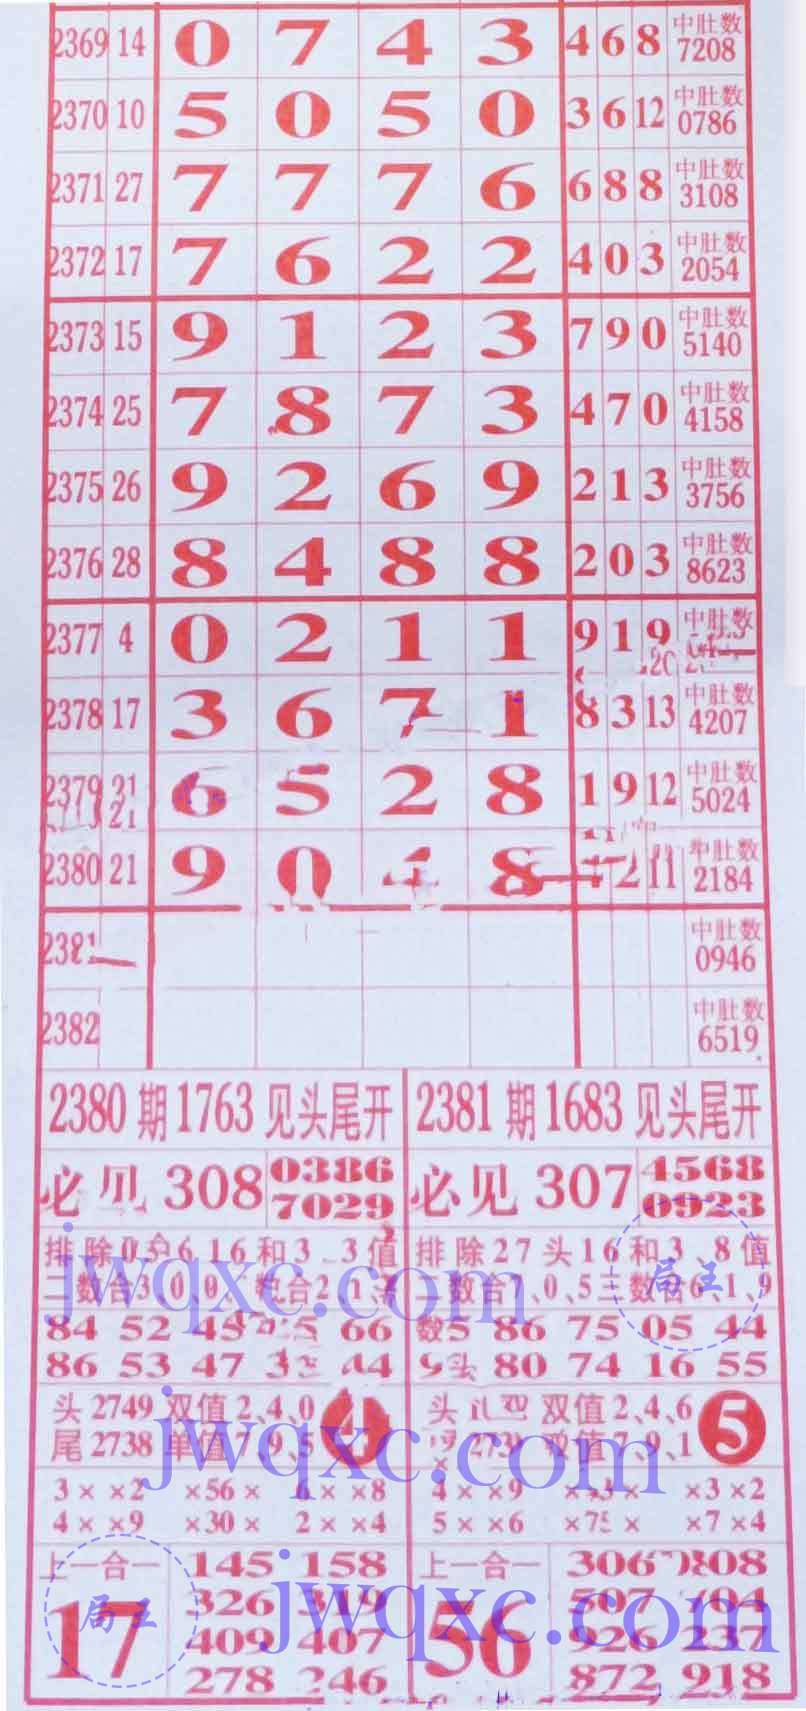 2369 14 0 7 4 3 4 6 8 中肚数 7208
2370 10 5 0 5 0 3 6 12 中肚数 0786
2371 27 7 7 7 6 6 8 8 中肚数 3108
2372 17 7 6 2 2 4 0 3 中肚数 2054
2373 15 9 1 2 3 7 9 0 中肚数 5140
2374 25 7 8 7 3 4 7 0 中肚数 4158
2375 26 9 2 6 9 2 1 3 中肚数 3756
2376 28 8 4 8 8 2 0 3 中肚数 8623
2377 4 0 2 1 1 9 1 9 中肚数
2378 17 3 6 7 1 8 3 13 中肚数 4207
2379 21 6 5 2 8 1 9 12 中肚数 5024
2380 21 9 0 4 8 2 11 中肚数 2184
2381 中肚数 0946
2382 中肚数 6519
2380期1763见头尾开
必见308 0386 7029
排除 6 16和3 3值
二数合3、0、0 数合2、1
84 52 45 66
86 53 47 44
头2749 双值2、4、0 4
尾2738 单值7、9、5
3×××2 ×56× 6××8
4×××9 ×30× 2××4
上一合一 145 158
17 326
409 407
278 246
2381期1683见头尾开
必见307 4568 0923
排除27头16和3、8值
二数合7、0、5三数合6、1、9
86 75 05 44
80 74 16 55
头 双值2、4、6 5
值7、9、1
4×××9 ×3×2
5×××6 ×7×4
上一合一 306 808
56 507
926 237
872 918
jwqxc.com
jwqxc.com
jwqxc.com
局王
局王